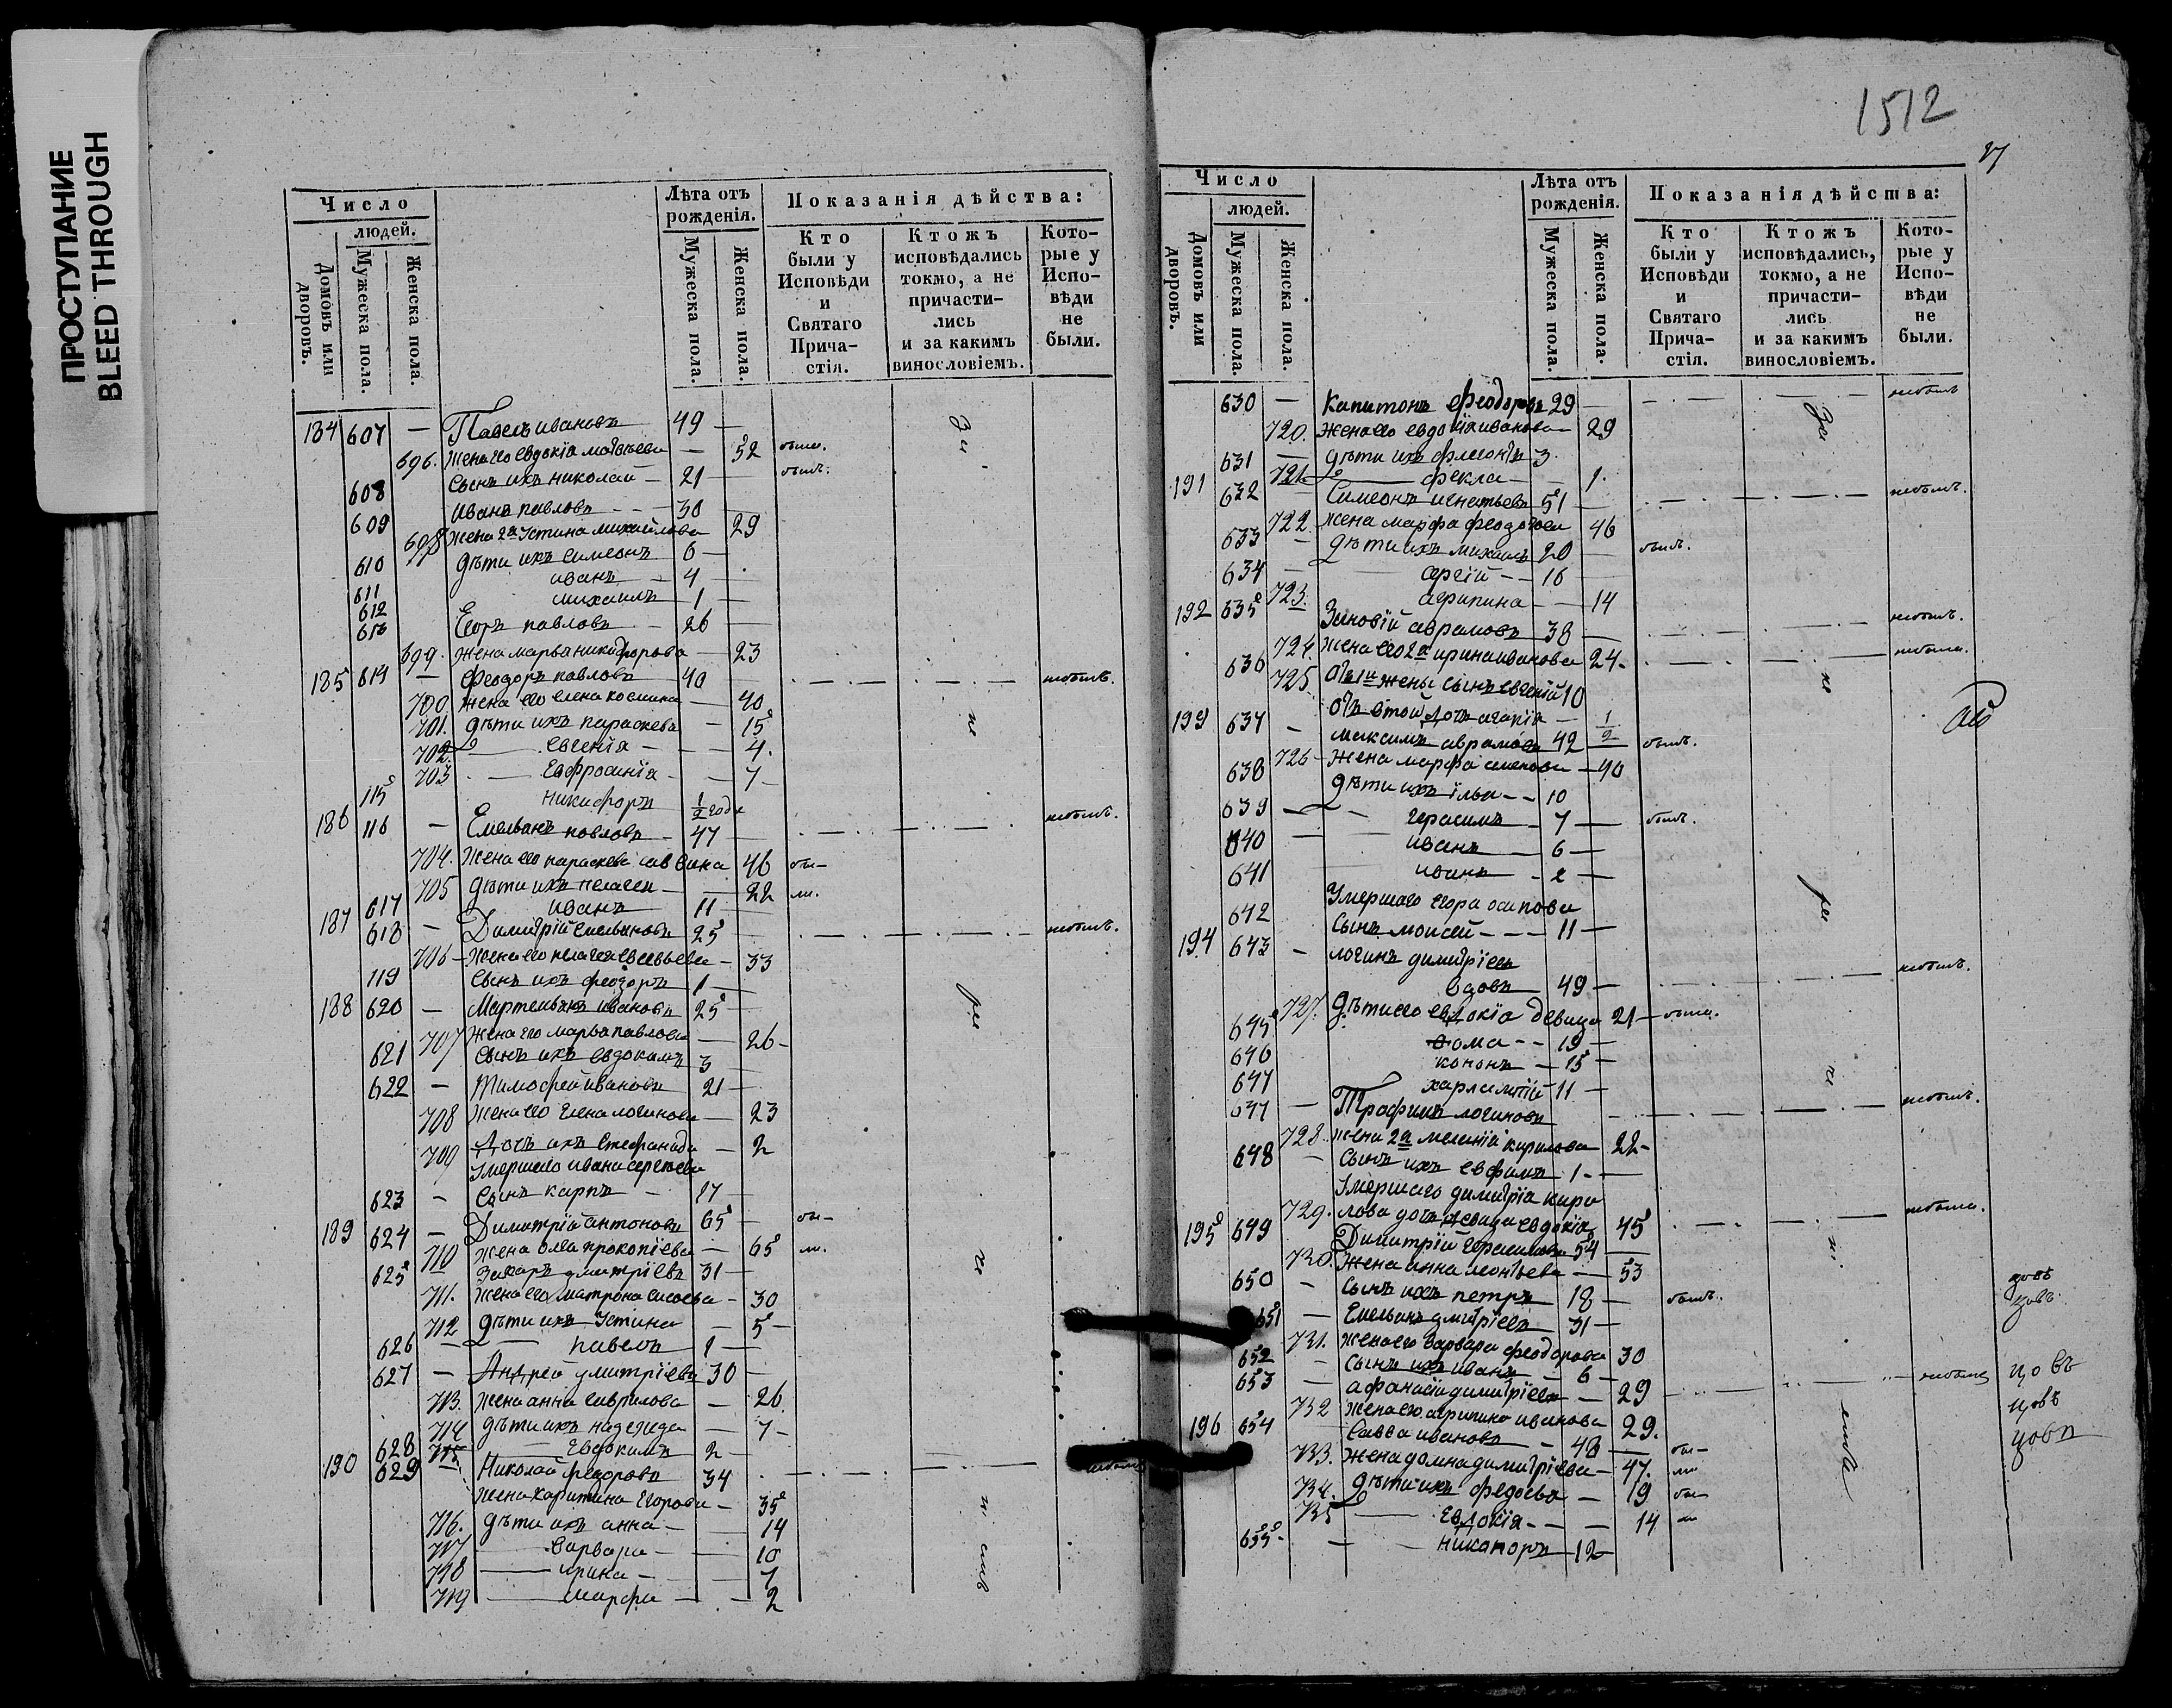 ПРОСТУПАНИЕ
BLEED THROUGH
Число
людей.
Домовъ или дворовъ.
Мужеска пола.
Женска пола.
Лѣта отъ рожденія.
Мужеска пола.
Женска пола.
Показанія дѣйства:
Кто были у Исповѣди и Святаго Прича-стія.
Ктожъ исповѣдались токмо, а не причасти-лись и за какимъ винословіемъ.
Кото-рые у Испо-вѣди не были.
184 607 — Павелъ ивановъ 49 —
696. Жена его евдокія матвѣева — 52 были.
608 Сынъ ихъ николай — 21 — былъ.
609 иванъ павловъ — 30 —
698 Жена 2я Устина михайлова 29
610 дѣти ихъ симеонъ 6 —
611 иванъ — 4 —
612 михаилъ 1 —
613 Егоръ павловъ — 26 —
699. Жена марья никифорова — 23
185 614 — Феодоръ павловъ 40 — небылъ.
700. Жена его елена космина — 40
701. дѣти ихъ параскева — 15
702. евгенія — — 4.
703 — Евфросинія — — 7 —
115 Никифоръ 1/2 года
186 116 — Емельянъ павловъ — 47 — небылъ.
704. Жена его параскева саввина 46 бы—
705 дѣти ихъ пелагея — — 22 ли.
617 иванъ 11 —
187 618 — Димитрій емельяновъ 25 — небылъ.
706 — Жена его пелагея евсевьева — 33
119 Сынъ ихъ феодоръ 1 —
188 620 — Мартемьянъ ивановъ 25 —
707 Жена его марья павлова — 26 —
621 Сынъ ихъ евдокимъ 3
622 — Тимофей ивановъ 21 —
708 Жена его елена логинова — 23
709 Дочь ихъ Стефанида — 2
Умершаго ивана сергеева
623 — Сынъ карпъ — 17 —
189 624 — Димитрій антоновъ 65 — бы—
710 Жена олга прокопіева — 65 ли.
625 Захаръ дмитріевъ 31 —
711. Жена его матрона сисоева — 30
712 дѣти ихъ Устина — 5 —
626 — павелъ 1 —
627 — Андрей дмитріевъ 30 —
713. Жена анна гаврилова — 26
714 дѣти ихъ надежда — 7 —
628 715 Евдокимъ 2 —
190 629 — Николай федоровъ 34
Жена харитина Егорова — 35
716. дѣти ихъ анна — — 14
717 — варвара — — 10
718 — ирина — — 7
719 — марфа — — 2
За
не
ре
че
ні
емъ
1512
Число
людей.
Домовъ или дворовъ.
Мужеска пола.
Женска пола.
Лѣта отъ рожденія.
Мужеска пола.
Женска пола.
Показанія дѣйства:
Кто были у Исповѣди и Святаго Прича-стія.
Ктожъ исповѣдались, токмо, а не причасти-лись и за какимъ винословіемъ.
Кото-рые у Испо-вѣди не были.
630 — Капитонъ Феодоровъ 29 — небылъ
720. Жена его евдокія иванова — 29
631 — дѣти ихъ флегонтъ 3
721. — фекла — — 1.
191 632 — Симеонъ игнатьевъ 51 — небылъ.
722. Жена марфа феодотова 46
633 — дѣти ихъ михаилъ 20 — былъ.
634 — сергій — — 16
723. агрипина — — 14
192 635 Зиновій аврамовъ 38 — небылъ.
724. Жена его 2я ирина иванова 24 — небыла.
636 Отъ 1й жены сынъ евгеній 10
725. Отъ этой дочь агапія — 1/2
193 637 — максимъ аврамовъ 42 — былъ.
726 — Жена марфа семенова — 40
638 дѣти ихъ ілья — — 10
639 — герасимъ — 7 — былъ.
640 — иванъ — 6 —
641 иванъ — 2 —
Умершаго егора осипова
642 Сынъ моисей — — — 11 —
194 643 — логинъ димитріевъ
вдовъ 49 — небылъ.
727. дѣти его евдокія девица 21 — была.
645 Фома — — 19 —
646 кононъ — 15 —
647 харлампій 11 —
647 — Трофимъ логиновъ небылъ.
728. Жена 2я меланія кирилова 22 —
648 — Сынъ ихъ евфимъ 1 —
Умершаго димитрія кири
729. лова дочь девица евдокія 45 небыла.
195 649 Димитрій герасимовъ 54 —
730. Жена анна леонтьева — 53
650 — Сынъ ихъ петръ 18 — былъ.
651 — Емельянъ дмитріевъ 31 —
731. Жена его варвара феодорова 30
652 — Сынъ ихъ иванъ — 6 —
653 — афанасій димитріевъ — 29 небылъ
732 Жена его агрипина иванова 29.
196 654 Савва ивановъ — 48 — бы—
733. Жена домна димитріева — 47. ли
734. дѣти ихъ федосья — 19 бы—
735 — Евдокія — — — 14 ли
655 — — Никаноръ 12 —
За
не
ре
че
ні
емъ